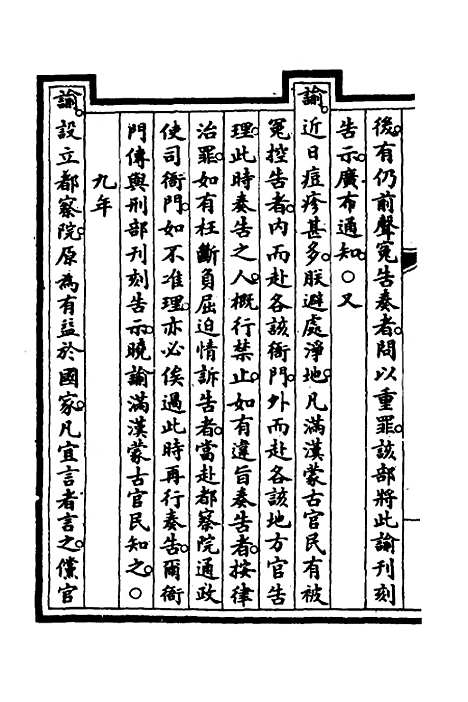 後有仍前聲冤告奏者問以重罪該部將此諭刊刻
告示廣布通知○又
諭近日痘疹甚多朕避處淨地凡滿漢蒙古官民有被
冤控告者内而赴各該衙門外而赴各該地方官告
理此時奏告之人概行禁止如有違旨奏告者按律
治罪如有枉斷負屈迫情訴告者當赴都察院通政
使司衙門如不准理亦必俟過此時再行奏告爾衙
門傳與刑部刊刻告示曉諭滿漢蒙古官民知之○
九年
諭設立都察院原為有益於國家凡宜言者言之儻官